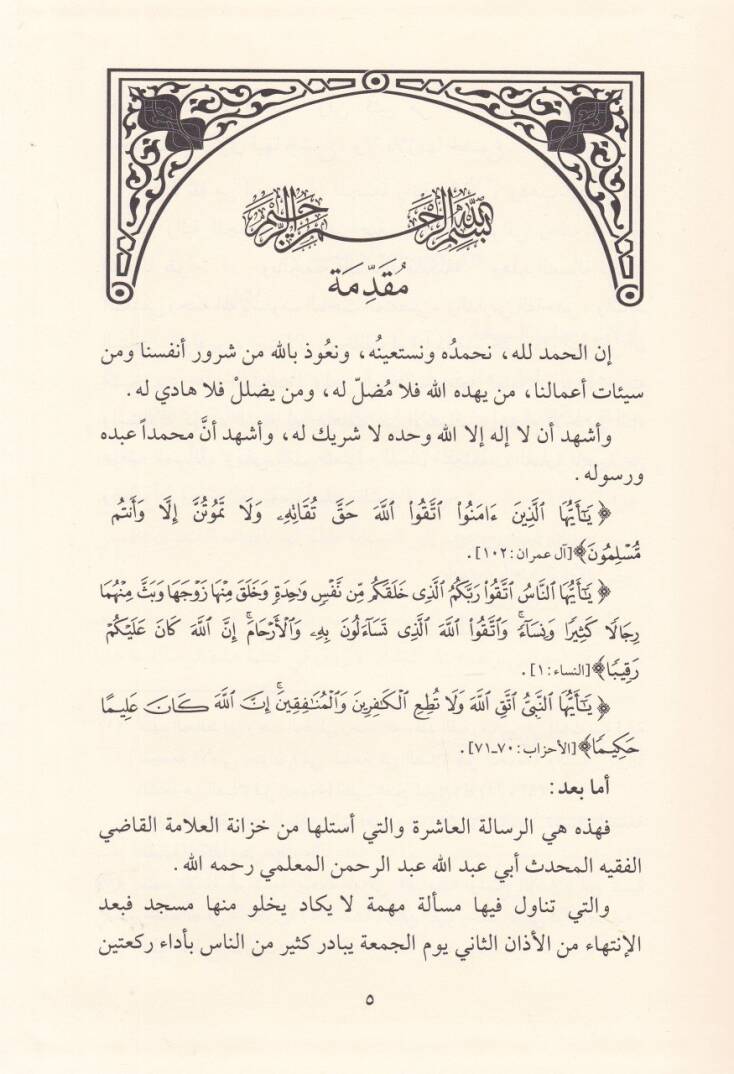 بسم الله الرحمن الرحيم
مُقَدِّمَة
إن الحمد لله، نحمدُه ونستعينُه، ونعُوذ بالله من شرور أنفسنا ومن
سيئات أعمالنا، من يهده الله فلا مُضلّ له، ومن يضللْ فلا هادي له.
وأشهد أن لا إله إلا الله وحده لا شريك له، وأشهد أنَّ محمداً عبده
ورسوله.
﴿ يَٰٓأَيُّهَا ٱلَّذِينَ ءَامَنُوا۟ ٱتَّقُوا۟ ٱللَّهَ حَقَّ تُقَاتِهِۦ وَلَا تَمُوتُنَّ إِلَّا وَأَنتُم
مُّسْلِمُونَ﴾[آل عمران: ١٠٢].
﴿ يَٰٓأَيُّهَا ٱلنَّاسُ ٱتَّقُوا۟ رَبَّكُمُ ٱلَّذِى خَلَقَكُم مِّن نَّفْسٍ وَٰحِدَةٍ وَخَلَقَ مِنْهَا زَوْجَهَا وَبَثَّ مِنْهُمَا
رِجَالًا كَثِيرًا وَنِسَآءً ۚ وَٱتَّقُوا۟ ٱللَّهَ ٱلَّذِى تَسَآءَلُونَ بِهِۦ وَٱلْأَرْحَامَ ۚ إِنَّ ٱللَّهَ كَانَ عَلَيْكُمْ
رَقِيبًا﴾[النساء: ١].
﴿ يَٰٓأَيُّهَا ٱلنَّبِىُّ ٱتَّقِ ٱللَّهَ وَلَا تُطِعِ ٱلْكَٰفِرِينَ وَٱلْمُنَٰفِقِينَ ۗ إِنَّ ٱللَّهَ كَانَ عَلِيمًا
حَكِيمًا﴾[الأحزاب: ٧٠ـ٧١].
أما بعد:
فهذه هي الرسالة العاشرة والتي أستلها من خزانة العلامة القاضي
الفقيه المحدث أبي عبد الله عبد الرحمن المعلمي رحمه الله.
والتي تناول فيها مسألة مهمة لا يكاد يخلو منها مسجد فبعد
الإنتهاء من الأذان الثاني يوم الجمعة يبادر كثير من الناس بأداء ركعتين
٥